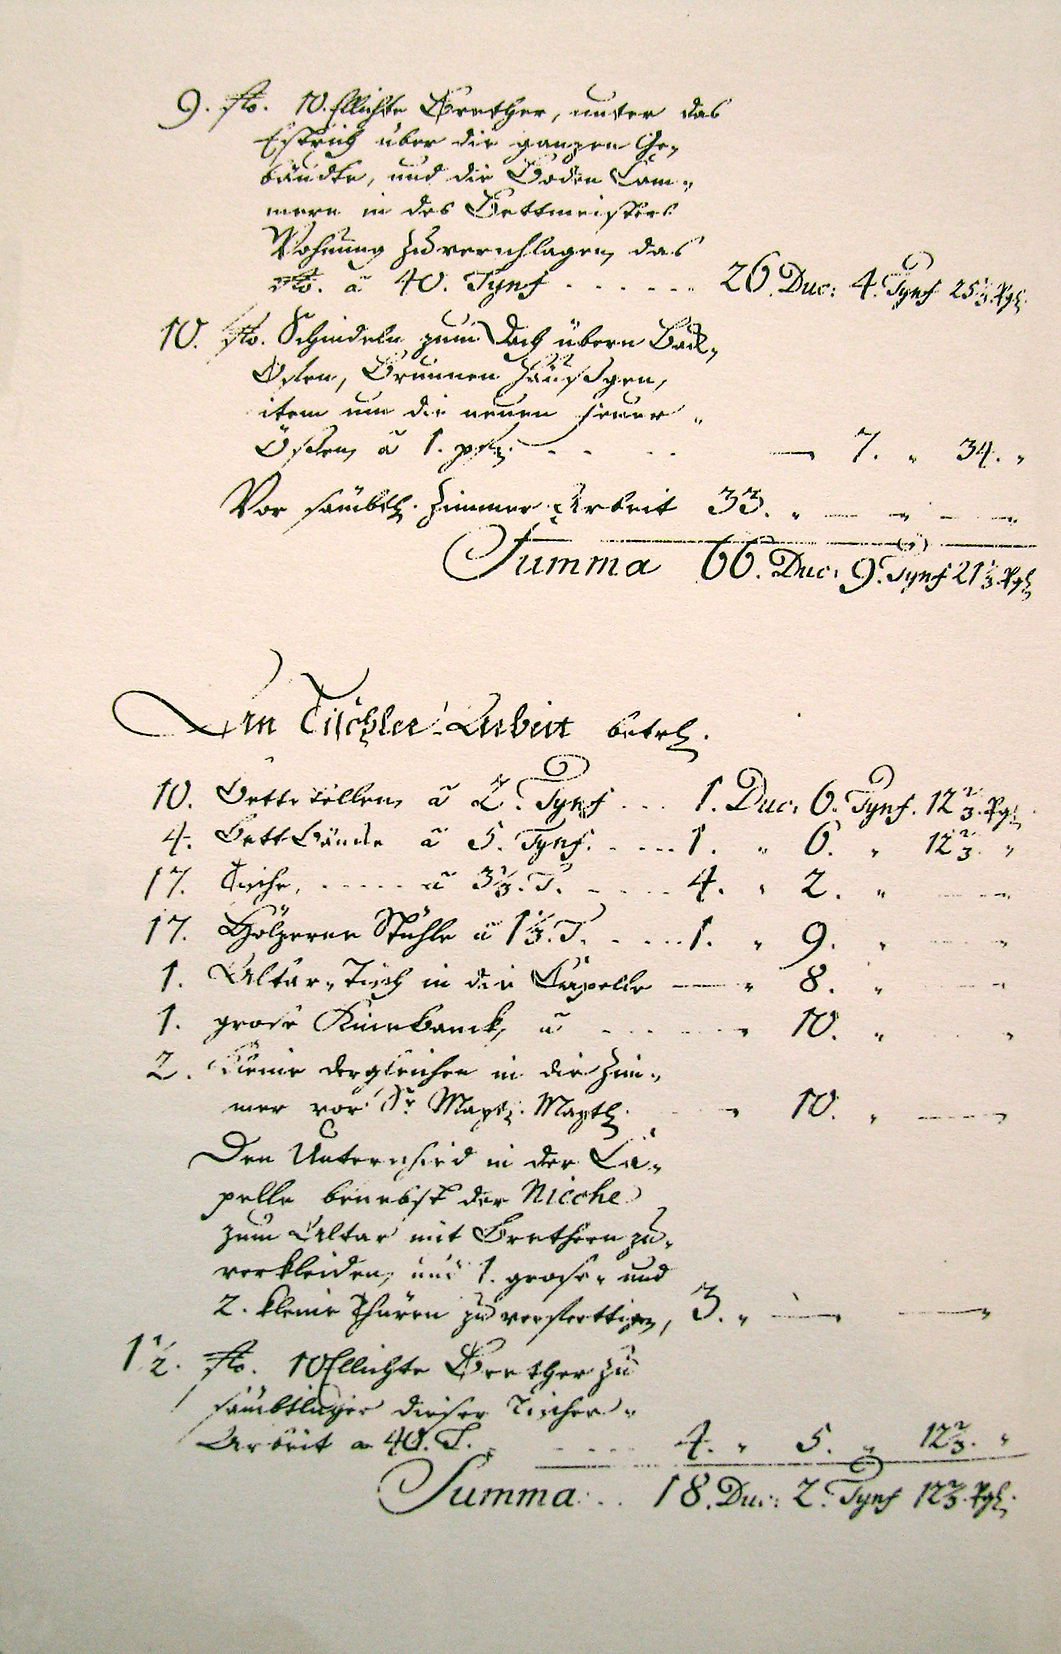 9. ßo. 10. Ellichte Brether, unter das
Estrich über die ganzen Ge-
bäudte, und die Boden Cam-
mern in des Bettmeisters
Wohnung zu verschlagen, das
ßo. à 40. Tynf 26. Duc: 4. Tynf 25 1/3. Pgl.
10. ßo. Schindeln zum Dach übern Back-
Ofen, Brunnen Häußgen,
item um die neuen Feuer
Össen, à 1. — 7. " 34. "
Vor sämbtl. Zimmer Arbeit 33. " — " — "
Summa 66. Duc: 9. Tynf 21 1/3. Pgl
An Tischler-Arbeit betrl.
10. Bettstellen, à 2. Tynf 1. Duc: 6. Tynf. 12 2/3. Pgl.
4. Bett Bäncke à 5. Tynf. 1. " 6. " 12 2/3. "
17. Tische, à 3 1/3. T. 4. " 2. " — "
17. Höltzerne Stühle à 1 1/3. T. 1. " 9. " — "
1. Altar-Tisch in die Capelle — " 8. " — "
1. große Kniebanck, à " 10. " "
2. kleine dergleichen in die Zim-
mer vor Sr. Mayt. Maytl. " 10. " — "
Den Unterschied in der Ca-
pelle benebst der Niche
zum Altar mit Brethern zu-
verkleiden, und 1. große- und
2. kleine Thüren zu verfertigen, 3. " — " — "
1 1/2. ßo. 10 Ellichte Brether zu
sämbtlicher dieser Tischer-
Arbeit a 40. T. 4. " 5. " 12 2/3. "
Summa 18. Duc: 2. Tynf 12 2/3. Pgl.